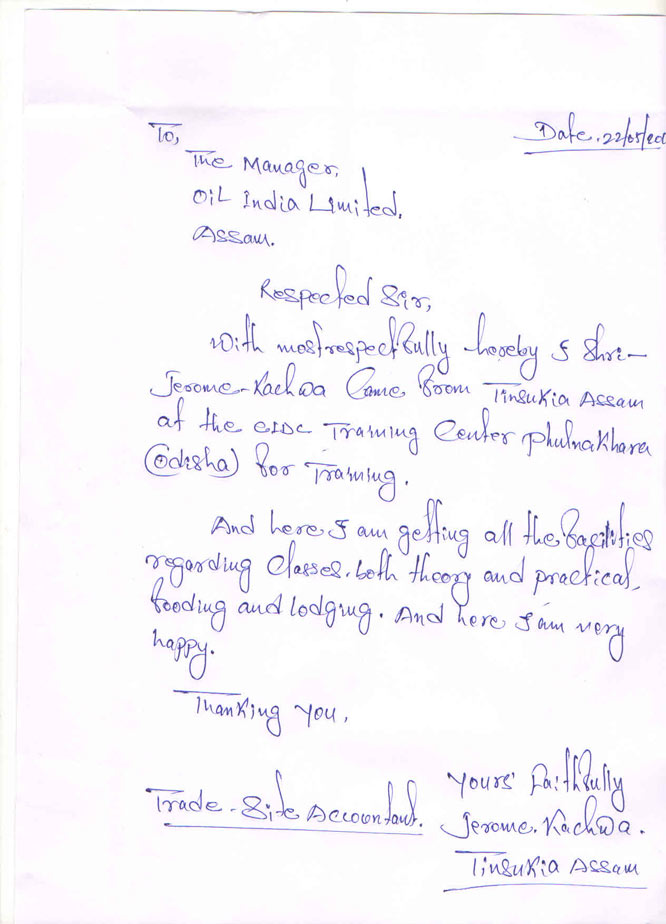 Date. 22/05/20
To,
The Manager,
Oil India Limited,
Assam.
Respected Sir,
With mostrespectfully hereby I Shri-
Jerome-Kachwa Came from Tinsukia Assam
at the CIDC Training Center Phulnakhara
(Odisha) for Training.
And here I am getting all the facilities
regarding Classes. both theory and practical,
fooding and lodging. And here I am very
happy.
Thanking you,
Yours' Faithfully
Trade - Site Accountant. Jerome. Kachwa.
Tinsukia Assam